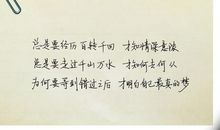 总是要经历百转千回 才知情深意浓
总是要走过千山万水 才知何去何从
为何要等到错过之后 才明白自己最真的梦